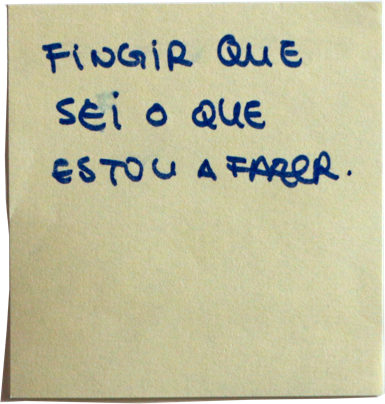 FINGIR QUE
SEI O QUE
ESTOU A FAZER.